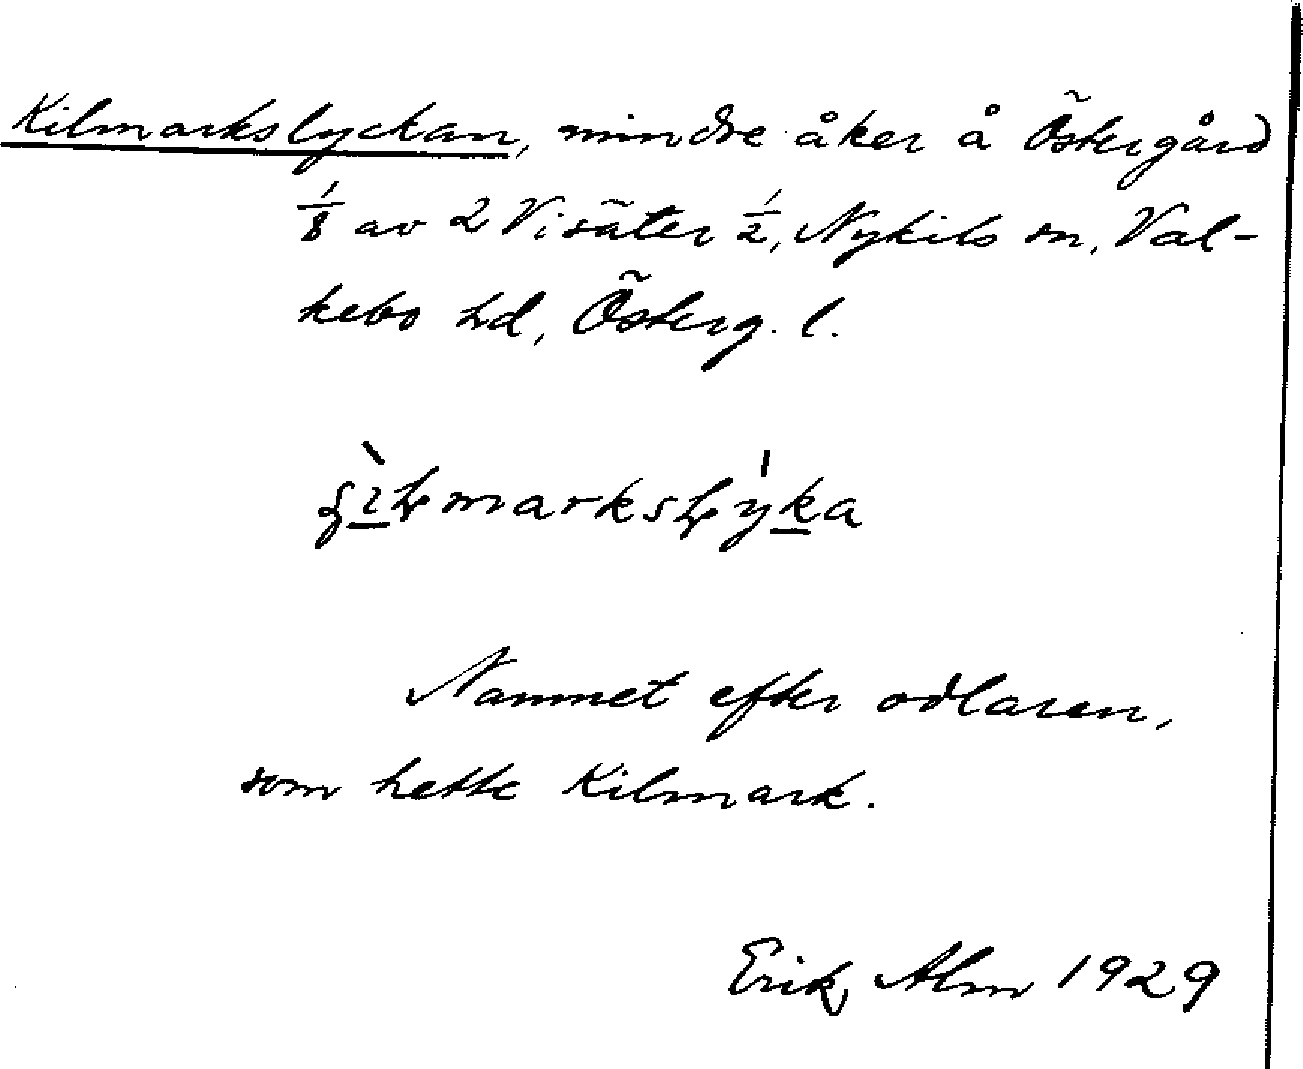 Kilmarkslyckan, mindre åker å Östergård
1/8 av 2 Visäter 1/2, Nykils sn, Val-
kebo hd, Österg. l.
Namnet efter odlaren,
som hette Kilmark.
Erik Alm 1929